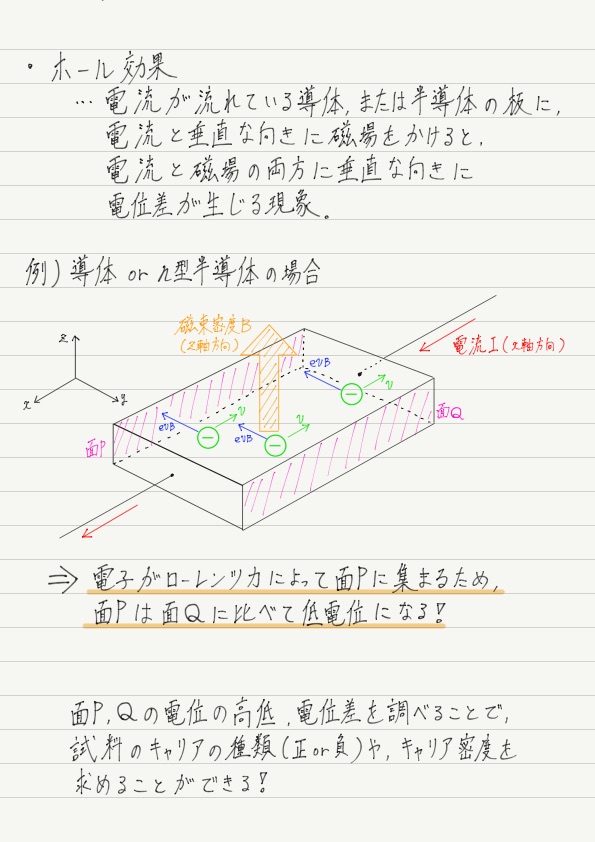 ・ ホール効果
… 電流が流れている導体,または半導体の板に,
電流と垂直な向きに磁場をかけると,
電流と磁場の両方に垂直な向きに
電位差が生じる現象。
例) 導体 or n型半導体の場合
磁束密度B
(z軸方向)
電流I(x軸方向)
z
x
y
evB
v
面Q
evB
v
evB
v
面P
⇒ 電子がローレンツ力によって面Pに集まるため,
面Pは面Qに比べて低電位になる!
面P,Qの電位の高低,電位差を調べることで,
試料のキャリアの種類(正or負)や,キャリア密度を
求めることができる!